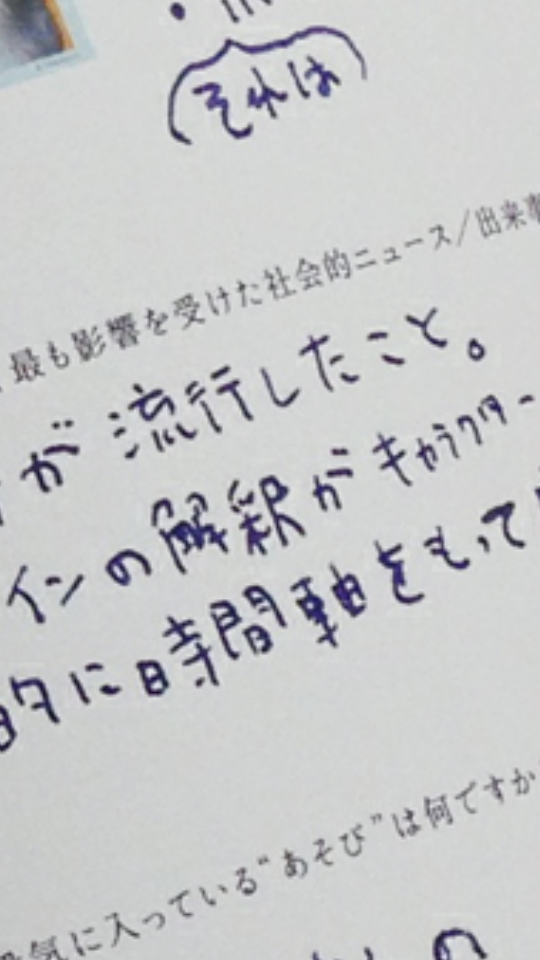 それは
最も影響を受けた社会的ニュース/出来事
が流行したこと。
インの解釈がキャラクター
的に時間軸をもって
気に入っている“あそび”は何ですか
の